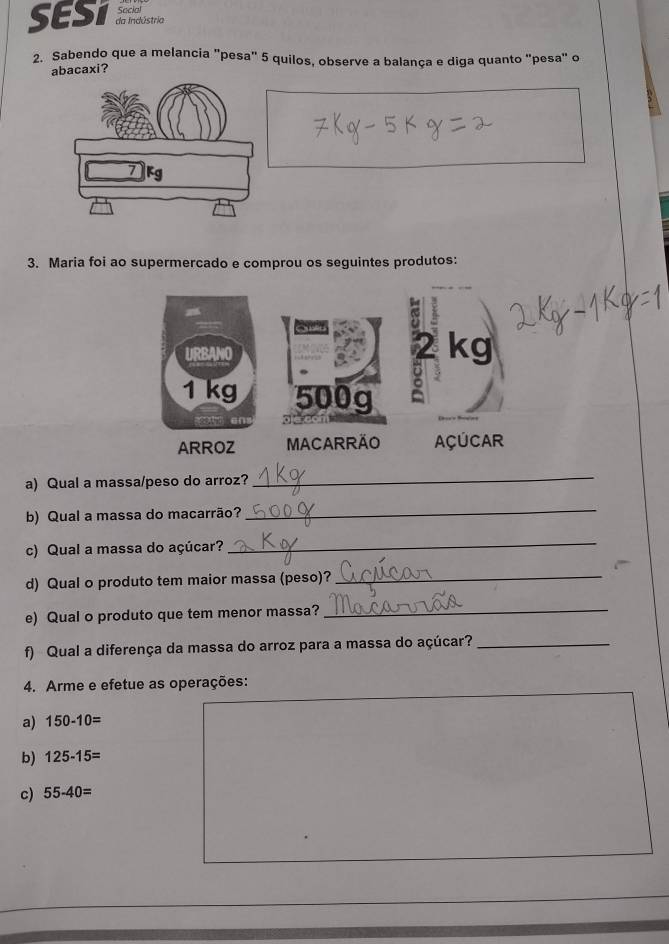 SESI Social
da Indústria
2. Sabendo que a melancia "pesa" 5 quilos, observe a balança e diga quanto "pesa" o
abacaxi?
7Kg-5Kg=2
7 Kg
3. Maria foi ao supermercado e comprou os seguintes produtos:
2Kg-1Kg=1
URBANO
1 kg
Qualitá
500g
Doce Sucar
2 kg
ARROZ MACARRÃO AÇÚCAR
a) Qual a massa/peso do arroz? 1Kg
b) Qual a massa do macarrão? 500g
c) Qual a massa do açúcar? 2Kg
d) Qual o produto tem maior massa (peso)? açúcar
e) Qual o produto que tem menor massa? Macarrão
f) Qual a diferença da massa do arroz para a massa do açúcar?
4. Arme e efetue as operações:
a) 150-10=
b) 125-15=
c) 55-40=